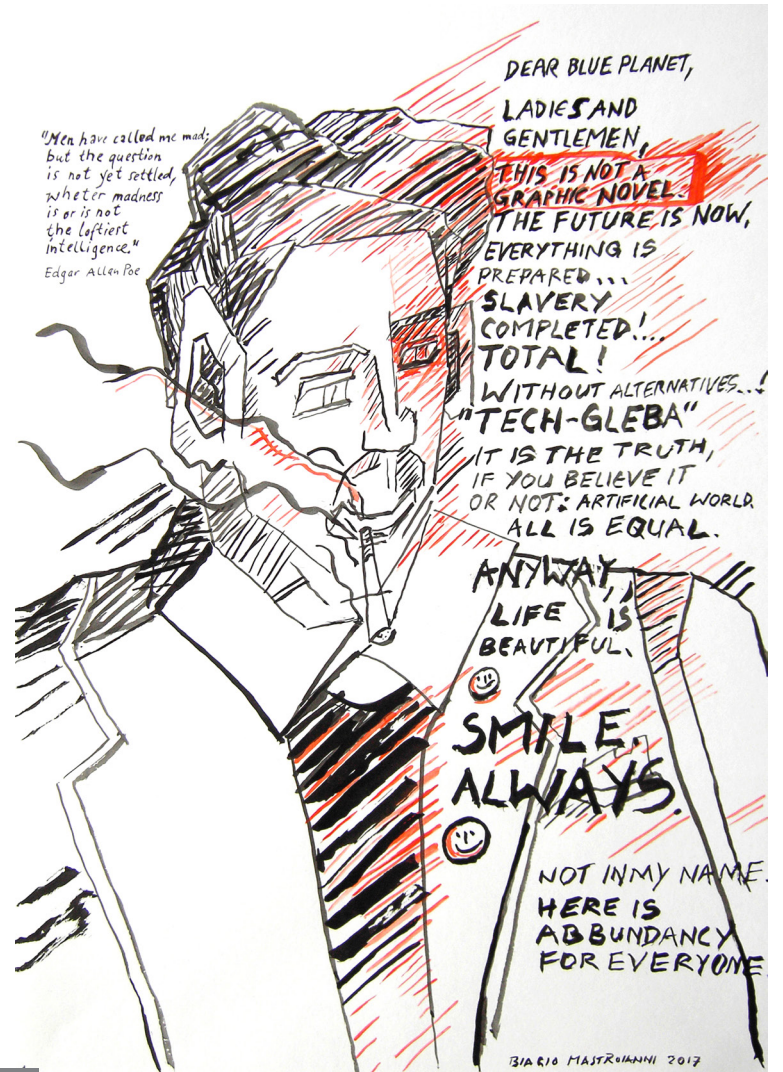 "Men have called me mad;
but the question
is not yet settled,
wheter madness
is or is not
the loftiest
intelligence."
Edgar Allan Poe
DEAR BLUE PLANET,
LADIES AND
GENTLEMEN,
THIS IS NOT A
GRAPHIC NOVEL.
THE FUTURE IS NOW,
EVERYTHING IS
PREPARED...
SLAVERY
COMPLETED!...
TOTAL!
WITHOUT ALTERNATIVES...!
"TECH-GLEBA"
IT IS THE TRUTH,
IF YOU BELIEVE IT
OR NOT: ARTIFICIAL WORLD.
ALL IS EQUAL.
ANYWAY,,
LIFE IS
BEAUTIFUL.
SMILE.
ALWAYS.
NOT IN MY NAME.
HERE IS
ABBUNDANCY
FOR EVERYONE.
BIAGIO MASTROIANNI 2017